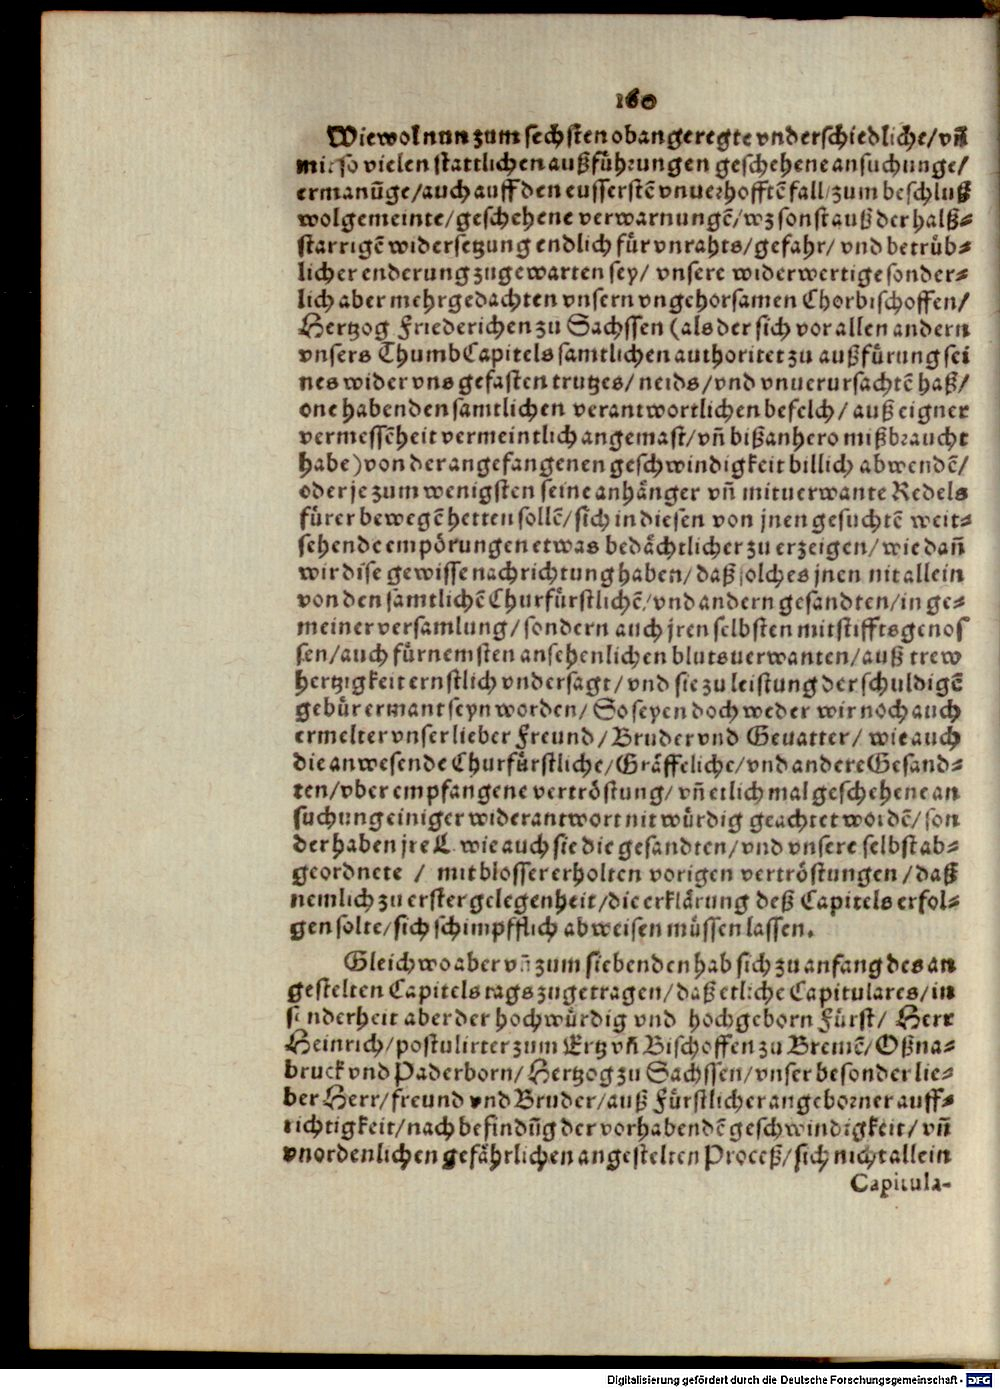 160
Wiewol nun zum sechsten obangeregte vnderschiedliche/ vñ
mit so vielen stattlichen außführungen geschehene ansuchunge/
ermanũge/ auch auff den eusserstẽ vnuerhofftẽ fall/ zum beschluß
wolgemeinte/ geschehene verwarnungẽ/ wz sonst auß der halß-
starrigẽ widersetzung endlich für vnrahts/ gefahr/ vnd betrüb-
licher enderung zugewarten sey/ vnsere widerwertige sonder-
lich aber mehrgedachten vnsern vngehorsamen Chorbischoffen/
Hertzog Friederichen zu Sachssen (als der sich vor allen andern
vnsers ThumbCapitels samtlichen authoritet zu außfürung sei
nes wider vns gefasten trutzes/ neids/ vnd vnuerursachtẽ haß/
one habenden samtlichen verantwortlichen befelch/ auß eigner
vermessẽheit vermeintlich angemast/ vñ bißanhero mißbraucht
habe) von der angefangenen geschwindigkeit billich abwendẽ/
oder je zum wenigsten seine anhänger vñ mituerwante Redels
fürer bewegẽ hetten sollẽ/ sich in diesen von jnen gesuchtẽ weit-
sehende empörungen etwas bedächtlicher zu erzeigen/ wie dañ
wir dise gewisse nachrichtung haben/ daß solches jnen nit allein
von den samtlichẽ Churfürstlichẽ/ vnd andern gesandten/ in ge-
meiner versamlung/ sondern auch jren selbsten mitstifftsgenos
sen/ auch fürnemsten ansehenlichen blutsuerwanten/ auß trew
hertzigkeit ernstlich vndersagt/ vnd sie zu leistung der schuldigẽ
gebür ermant seyn worden/ So seyen doch weder wir noch auch
ermelter vnser lieber Freund/ Bruder vnd Geuatter/ wie auch
die anwesende Churfürstliche/ Gräffeliche/ vnd andere Gesand-
ten/ vber empfangene vertröstung/ vñ etlich mal geschehene an
suchung einiger widerantwort nit würdig geachtet wordẽ/ son
der haben jre L. wie auch sie die gesandten/ vnd vnsere selbst ab-
geordnete / mit blosser erholten vorigen vertröstungen/ daß
nemlich zu erster gelegenheit/ die erklärung deß Capitels erfol-
gen solte/ sich schimpfflich abweisen müssen lassen.
Gleich wo aber vñ zum siebenden hab sich zu anfang des an
gestelten Capitels tags zugetragen/ daß etliche Capitulares/ in
sonderheit aber der hochwürdig vnd hochgeborn Fürst/ Herr
Heinrich/ postulirter zum Ertz vñ Bischoffen zu Bremẽ/ Oßna-
bruck vnd Paderborn/ Hertzog zu Sachssen/ vnser besonder lie-
ber Herr/ freund vnd Bruder/ auß Fürstlicher angeborner auff-
richtigkeit/ nach befindũg der vorhabendẽ geschwindigkeit/ vñ
vnordenlichen gefährlichen angestelten Proceß/ sich nicht allein
Capitula-
Digitalisierung gefördert durch die Deutsche Forschungsgemeinschaft - DFG